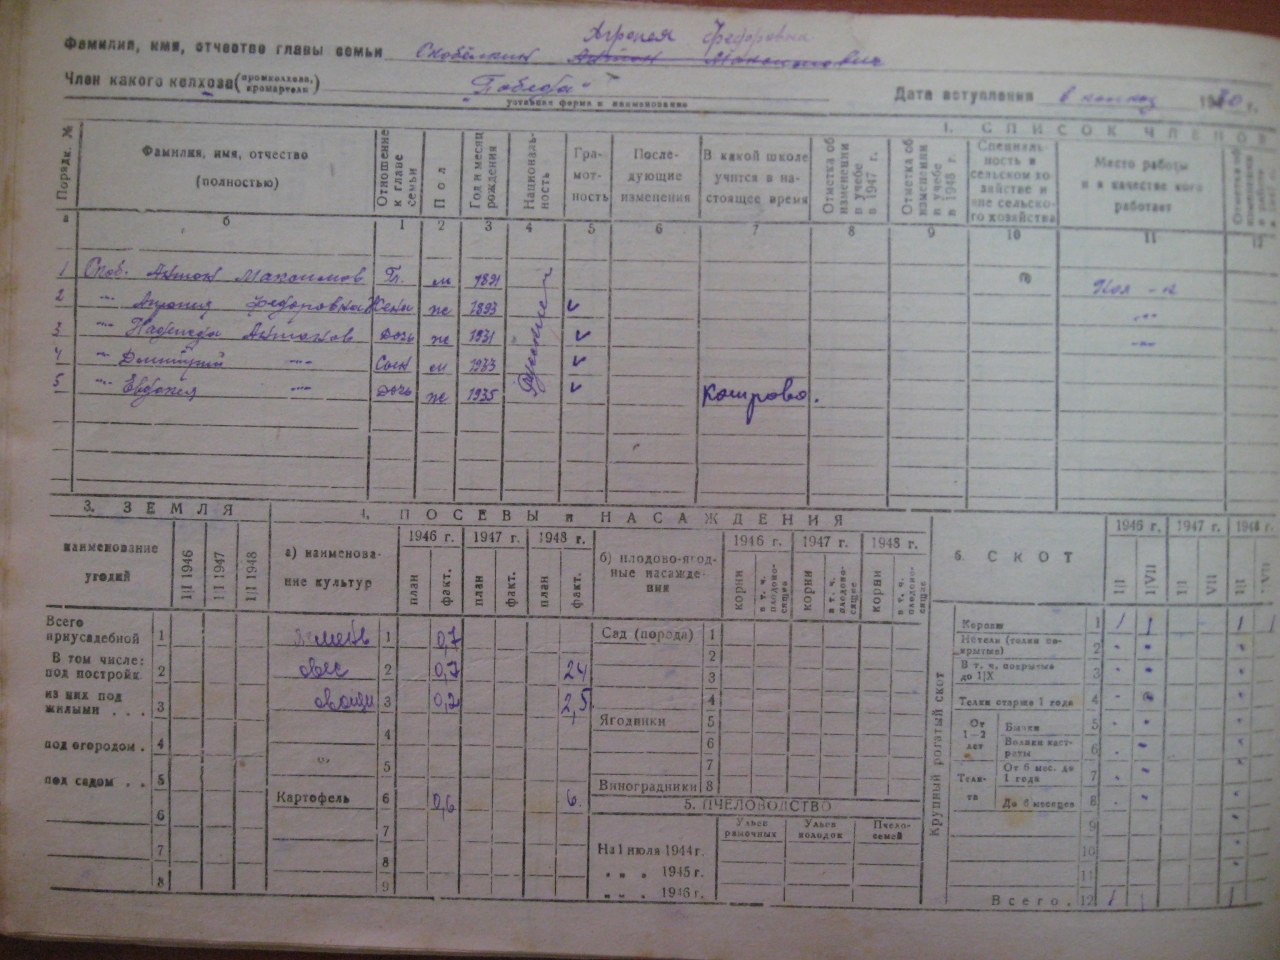 Агрепея Федоровна
Фамилия, имя, отчество главы семьи Скобёлкин Антон Максимович
Член какого колхоза (промколхоза, кромартели) "Победа"
уставная форма и наименование
Дата вступления в колхоз 1930 г.
1. СПИСОК ЧЛЕНОВ
Порядк. № Фамилия, имя, отчество (полностью) Отношение к главе семьи Пол Год и месяц рождения Националь-ность Гра-мот-ность После-дующие изменения В какой школе учится в на-стоящее время Отметка об изменении в учебе в 1947 г. Отметка об изменении в учебе в 1948 г. Специаль-ность в сельском хо-зяйстве и вне сельско-го хозяйства Место работы и в качестве кого работает
а б 1 2 3 4 5 6 7 8 9 10 11 12
1 Скоб. Антон Максимов Гл. м 1891 Русские Кол-к
2 -"- Агрепея Федоровна Жена ж 1893 v -"-
3 -"- Надежда Антонов Дочь ж 1931 v -"-
4 -"- Дмитрий -"- Сын м 1933 v
5 -"- Евдокия -"- Дочь ж 1935 v Кошрово.
3. ЗЕМЛЯ
наименование угодий 1|I 1946 1|I 1947 1|I 1948
Всего приусадебной 1
В том числе: под постройк. 2
из них под жилыми . . . 3
под огородом . 4
под садом . . 5
6
7
8
4. ПОСЕВЫ и НАСАЖДЕНИЯ
а) наименова-ние культур 1946 г. 1947 г. 1948 г.
план факт. план факт. план факт.
1 0,7
овес 2 0,7 24
овощи 3 0,2 2,5
4
5
Картофель 6 0,6 6.
7
8
9
б) плодово-ягод-ные насажде-ния 1946 г. 1947 г. 1948 г.
корни в т. ч. плодоно-сящие корни в т. ч. плодоно-сящие корни в т. ч. плодоно-сящие
Сад (порода) 1
2
3
4
Ягодники 5
6
7
Виноградники 8
5. ПЧЕЛОВОДСТВО
Ульев рамочных Ульев колодок Пчело-семей
На 1 июля 1944 г.
" " " 1945 г.
" " " 1946 г.
6. СКОТ
1946 г. 1947 г. 1948 г.
1|I 1|VII 1|I VII 1|I VII
Крупный рогатый скот
Коровы 1 1 1 1 1
Нетели (телки по-крытые) 2
В т. ч. покрытые до 1|X 3
Телки старше 1 года 4
От 1—2 лет Бычки 5
Волики каст-раты 6
Теля-та От 6 мес. до 1 года 7
До 6 месяцев 8
9
10
11
Всего. 12 1 1 1